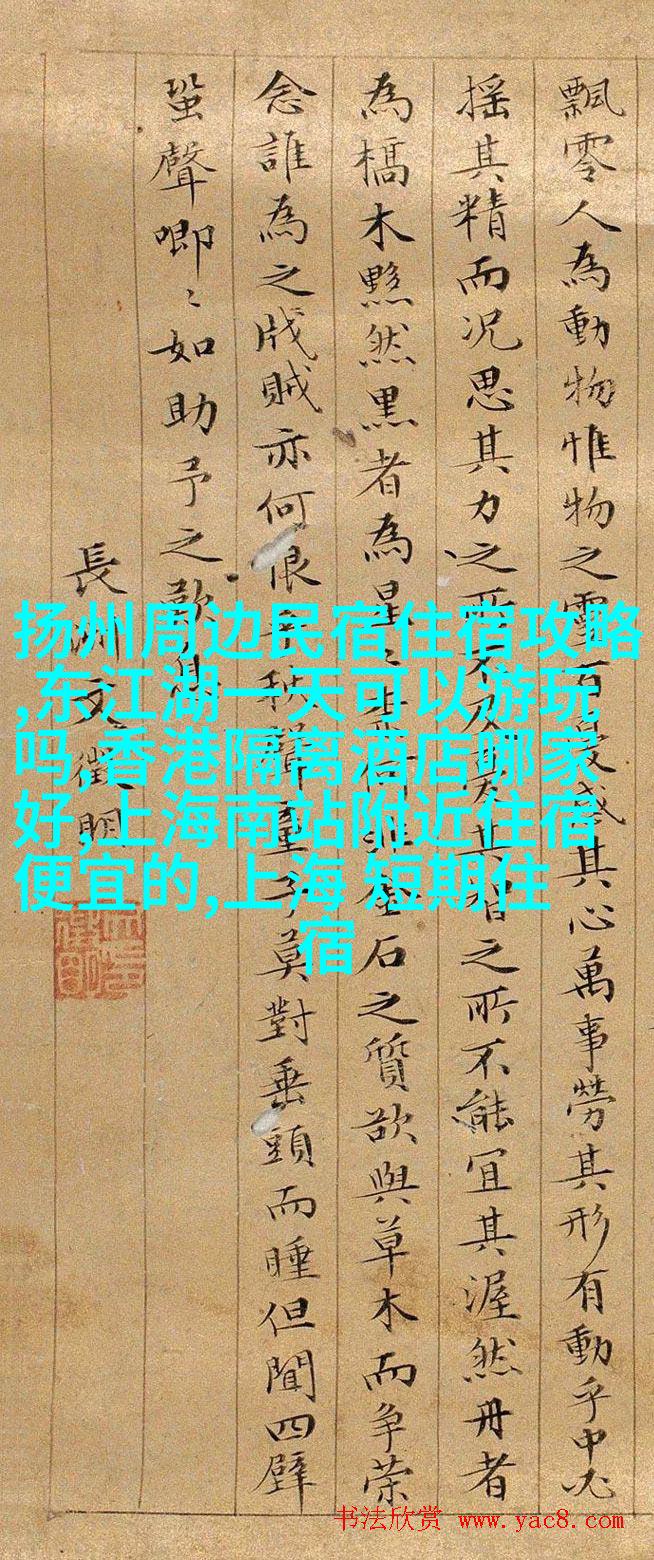 飄零人為動物惟物之靈百憂感其心萬事勞其形有動乎中必
搖其精而况思其力之所不及憂其智之所不能宜其渥然丹者
為槁木黟然黑者為星〻奈何非金石之質欲與草木而争榮
念誰為之戕賊亦何恨乎秋聲童子莫對垂頭而睡但聞四壁
蛩聲唧〻如助予之歎息
長洲文徵明
扬州周边民宿住宿攻略
,东江湖一天可以游玩
吗,香港隔离酒店哪家
好,上海南站附近住宿
便宜的,上海 短期住
宿
书法欣赏 www.yac8.com